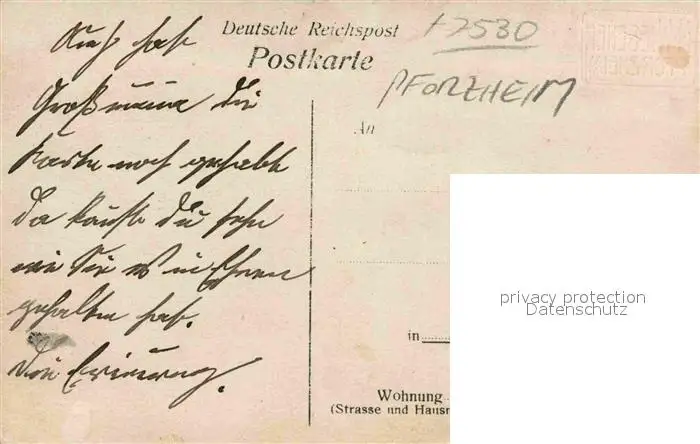 Deutsche Reichspost
Postkarte
+7530
PFORZHEIM
An
Auch hat
Großmama die
Karte noch gehabt
da kannst du sehn
wie Sie es in Ehren
gehalten hat.
Die Erinnerung.
in
Wohnung
(Strasse und Hausn
privacy protection
Datenschutz